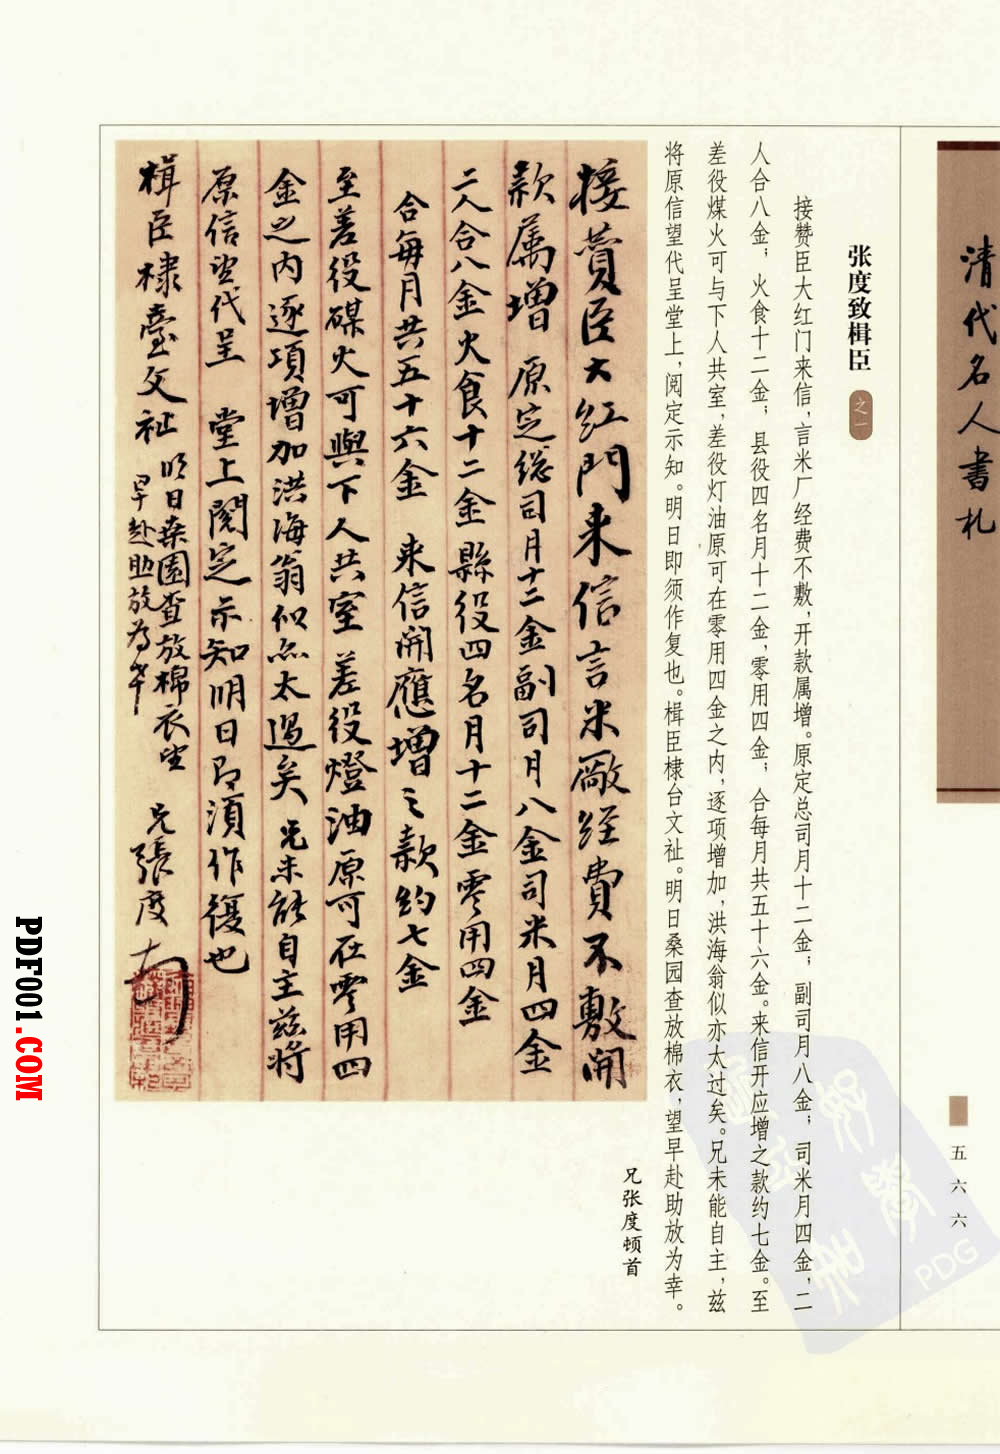 清代名人書札
五六六
张度致楫臣
之一
接赞臣大红门来信，言米厂经费不敷，开款属增。原定总司月十二金；副司月八金；司米月四金，二
人合八金；火食十二金；县役四名月十二金，零用四金；合每月共五十六金。来信开应增之款约七金。至
差役煤火可与下人共室，差役灯油原可在零用四金之内，逐项增加，洪海翁似亦太过矣。兄未能自主，兹
将原信望代呈堂上，阅定示知。明日即须作复也。楫臣棣台文祉。明日桑园查放棉衣，望早赴助放为幸。
兄张度顿首
接賛臣大紅門来信言米廠经費不敷開
款属增 原定總司月十二金副司月八金司米月四金
二人合八金火食十二金縣役四名月十二金零用四金
合每月共五十六金 来信開應增之款约七金
至差役煤火可與下人共室 差役燈油原可在零用四
金之内逐項增加洪海翁似亦太過矣 兄未能自主兹將
原信望代呈 堂上閱定示知明日即須作復也
楫臣棣臺文祉 明日桑園查放棉衣望
早赴助放为幸
兄張度
PDG
PDF001.COM